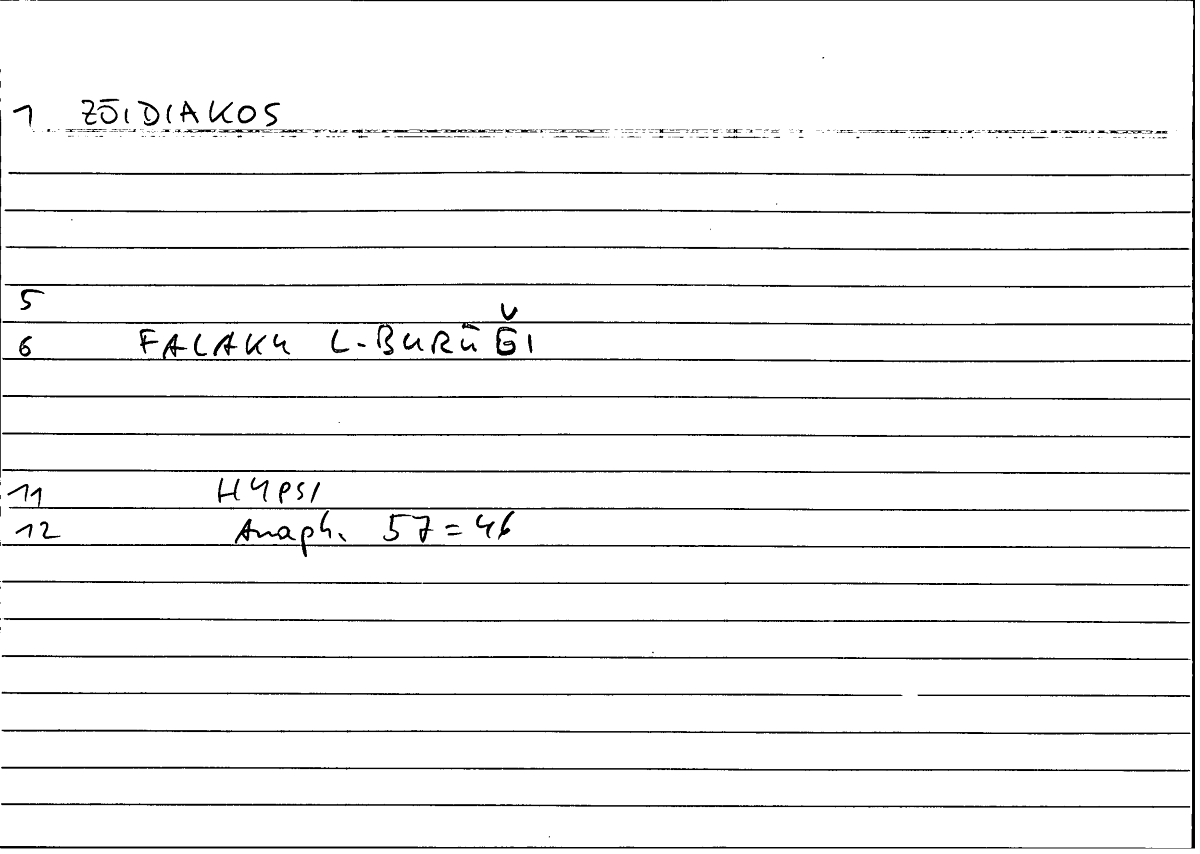 1 ZŌIDIAKOS
5
6 FALAKU L-BURŪǦI
11 HYPSI
12 Anaph. 57=46